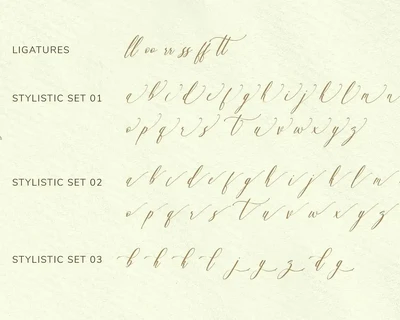 LIGATURES ll oo rr ss ff tt
STYLISTIC SET 01 a b c d e f g h i j k l m n
o p q r s t u v w x y z
STYLISTIC SET 02 a b c d e f g h i j k l m n
o p q r s t u v w x y z
STYLISTIC SET 03 b h k l j y g z d g